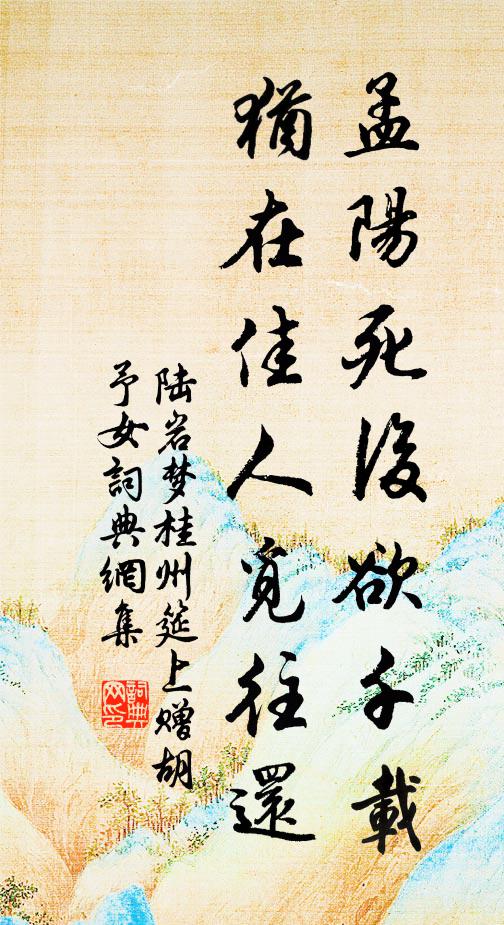 孟陽死後欲千載
猶在佳人覓往還
陆岩梦桂州筵上赠胡
予女詞典網集
詞典网印